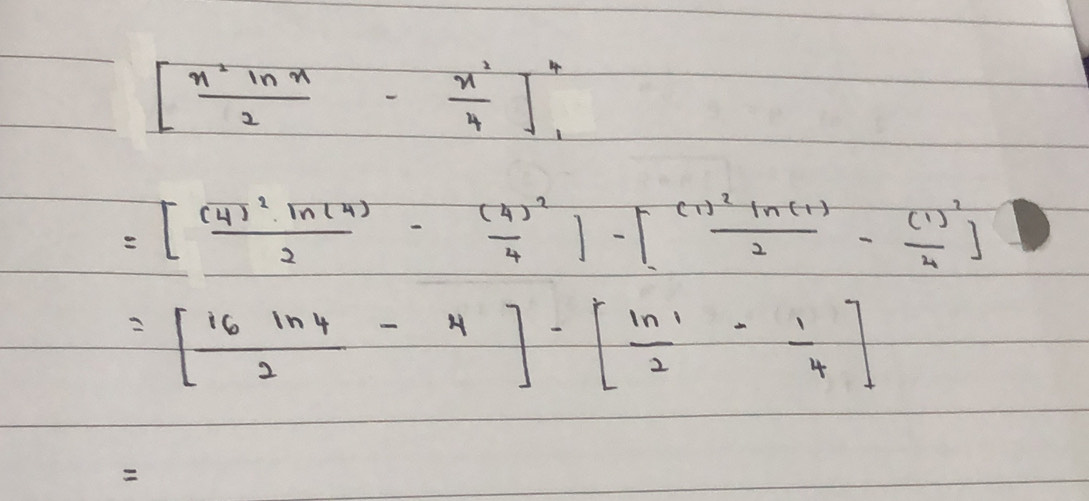 [x² ln x / 2 - x² / 4]₁⁴
= [(4)² . ln(4) / 2 - (4)² / 4] - [(1)² ln(1) / 2 - (1)² / 4]
= [16 ln 4 / 2 - 4] - [ln 1 / 2 - 1 / 4]
=